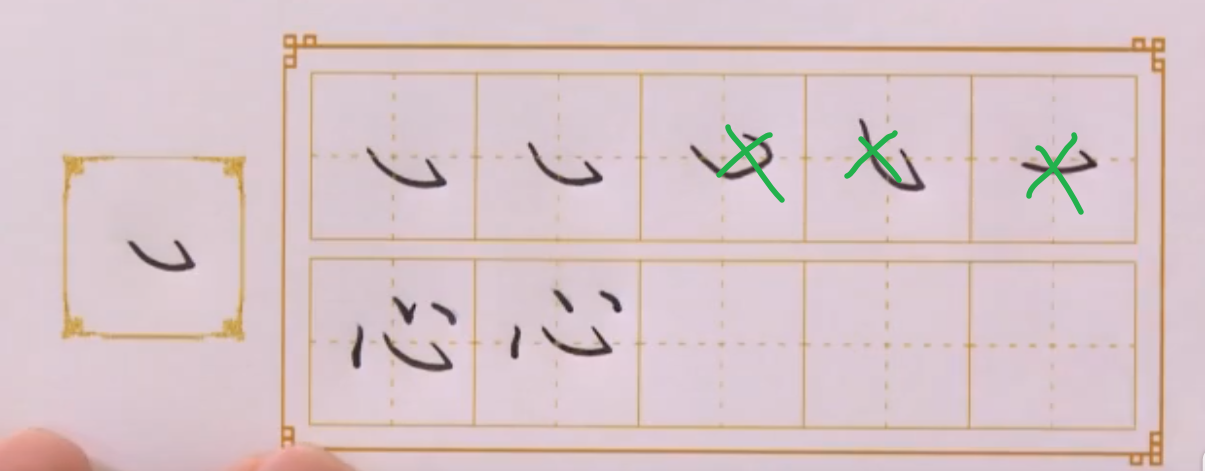 ㇃
㇃ ㇃ ㇃ ㇃ ㇃
心 心